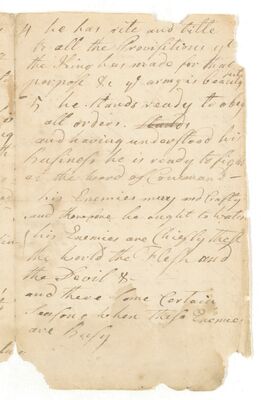 4 he has rite and title
to all the Provisitions yt
the King has made for that
purpose &c ye army is
5 he stands ready to obey
all orders.
and having understood his
business he is ready to fight
at the word of Command —
his Enemies many and Crafty
and therefore he ought to watch
his Enemies are Chiefly these
the World the Flesh and
the Devil &-
and there some Certain
Seasons when these Enemies
are Busy